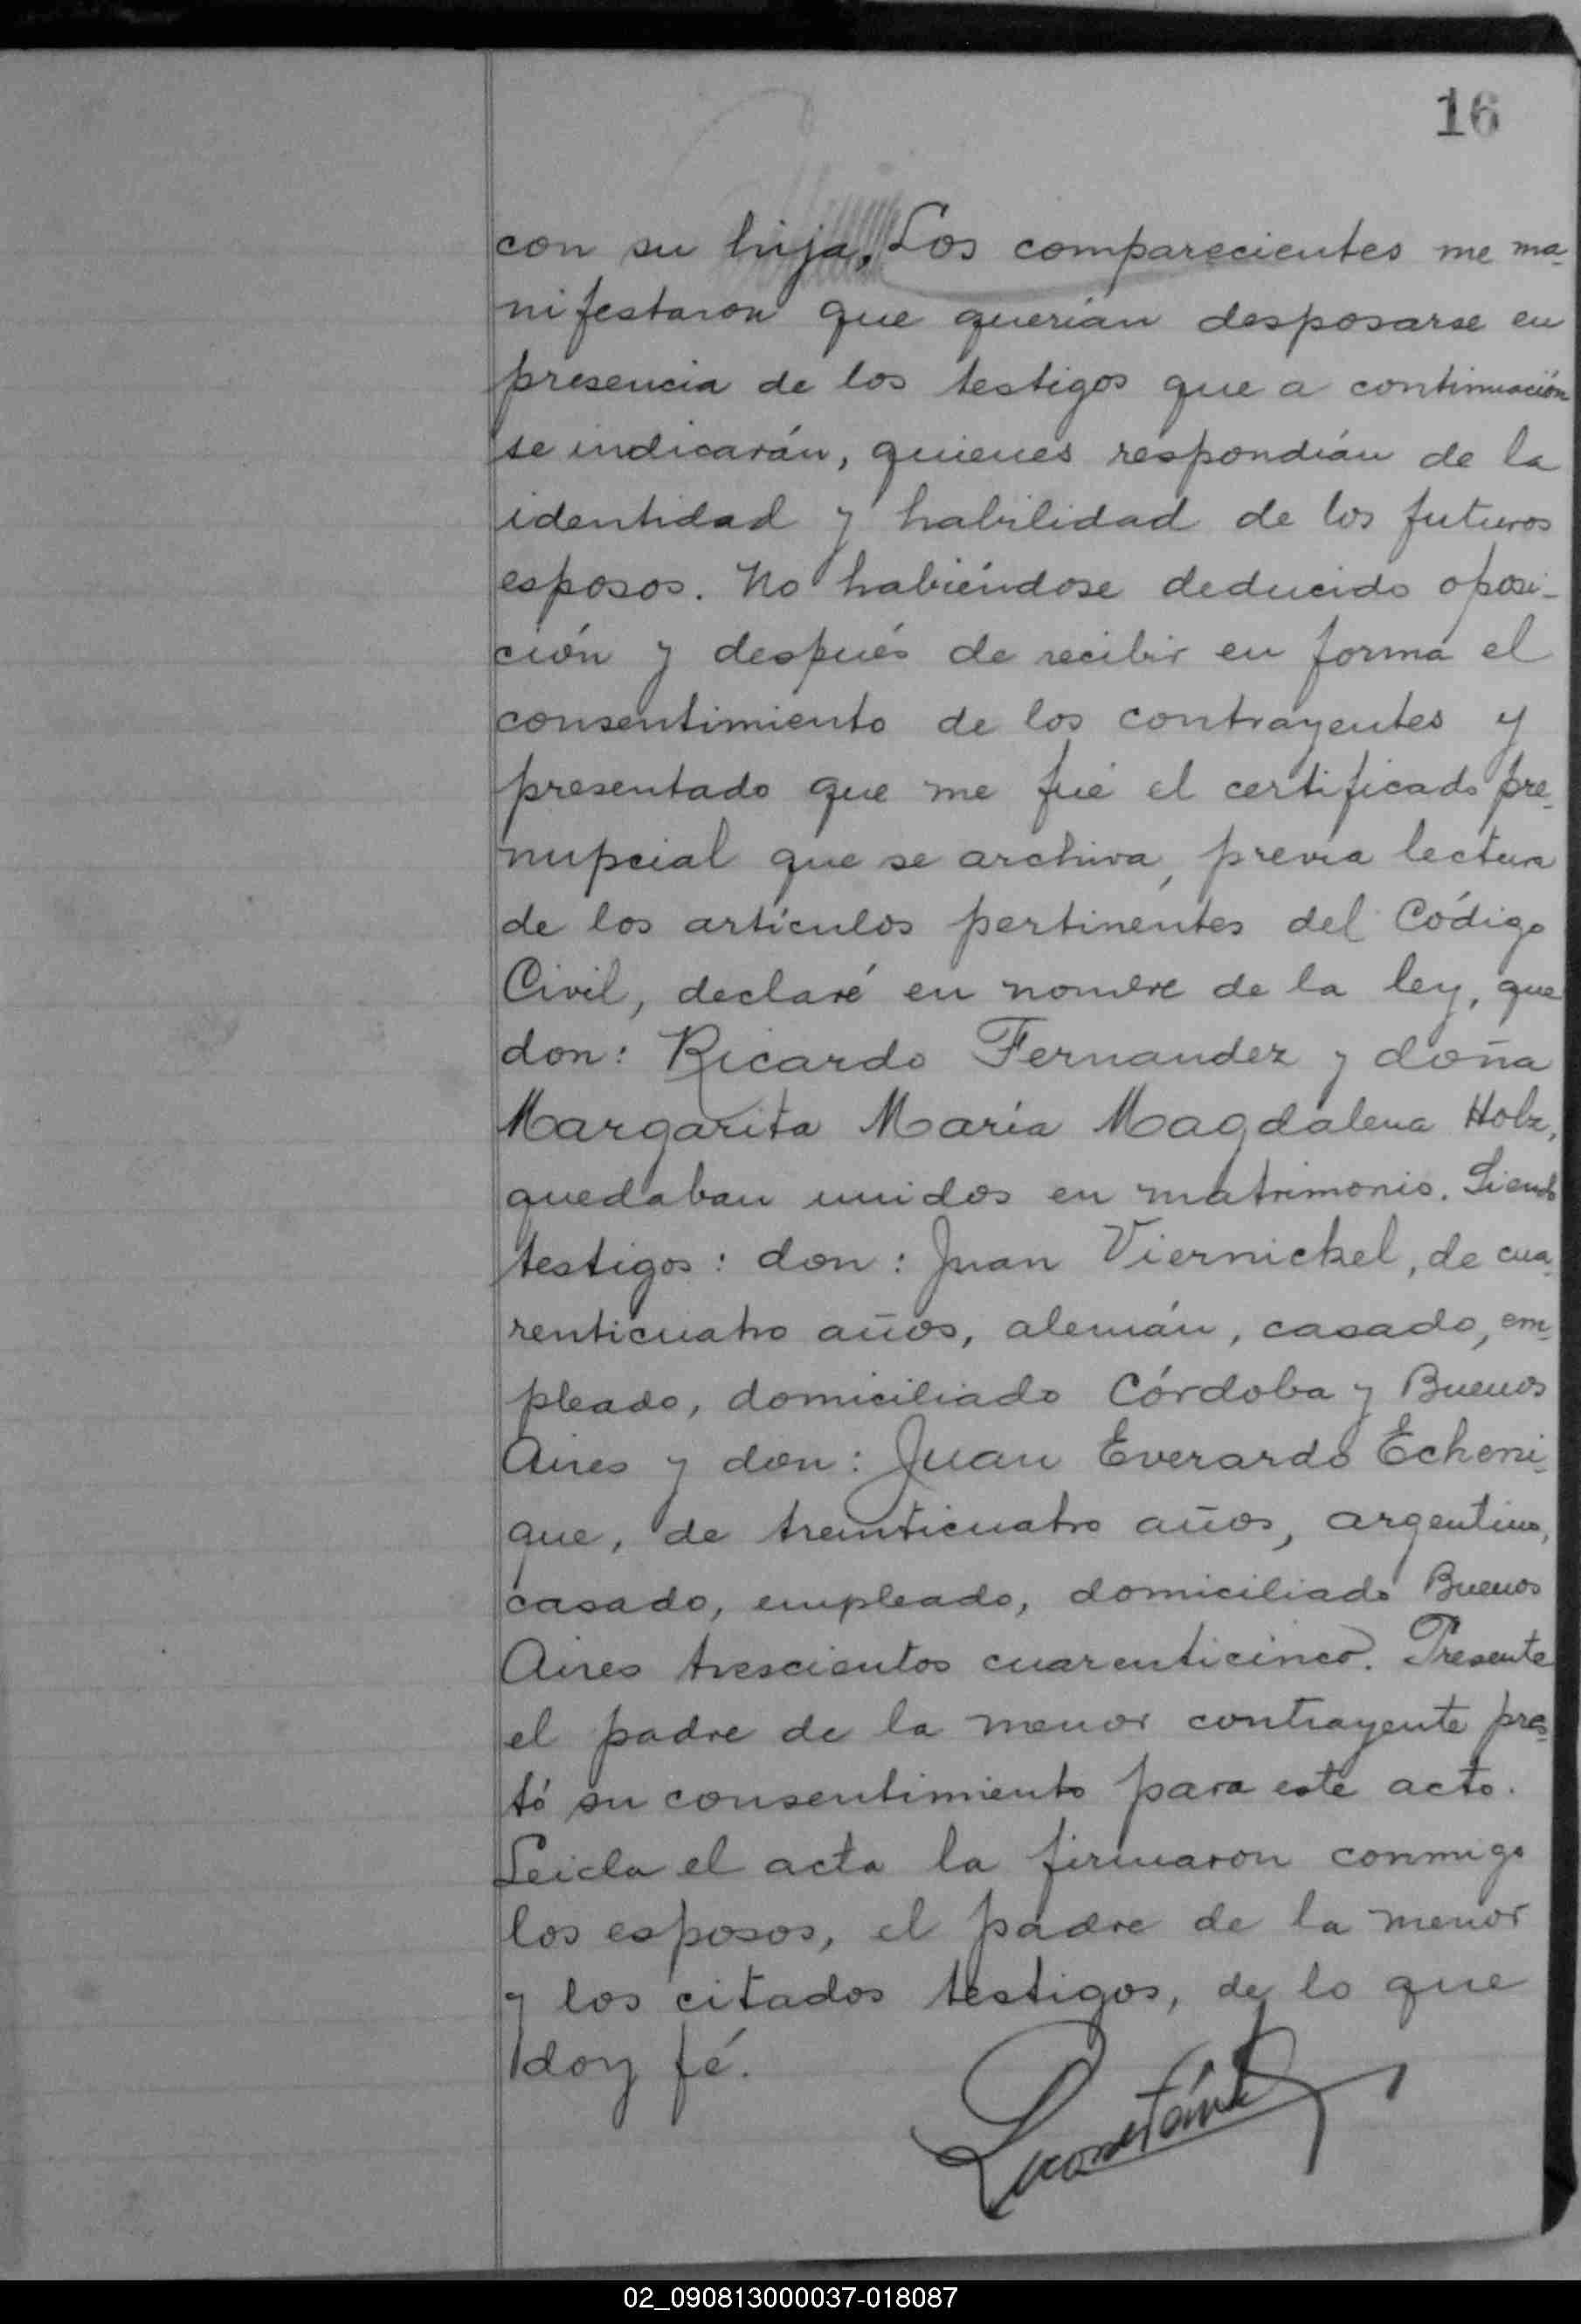 16
con su hija, Los comparecientes me ma-
nifestaron que querían desposarse en
presencia de los testigos que a continuación
se indicarán, quienes respondían de la
identidad y habilidad de los futuros
esposos. No habiéndose deducido oposi-
ción y después de recibir en forma el
consentimiento de los contrayentes y
presentado que me fué el certificado pre-
nupcial que se archiva, previa lectura
de los artículos pertinentes del Código
Civil, declaré en nombre de la ley, que
don: Ricardo Fernandez y doña
Margarita María Magdalena Holz,
quedaban unidos en matrimonio. Siendo
testigos: don: Juan Viernickel, de cua-
renticuatro años, alemán, casado, em-
pleado, domiciliado Córdoba y Buenos
Aires y don: Juan Everardo Echeni-
que, de treinticuatro años, argentino,
casado, empleado, domiciliado Buenos
Aires trescientos cuarenticinco. Presente
el padre de la menor contrayente pres-
tó su consentimiento para este acto.
Leida el acta la firmaron conmigo
los esposos, el padre de la menor
y los citados testigos, de lo que
doy fé.
02_090813000037-018087